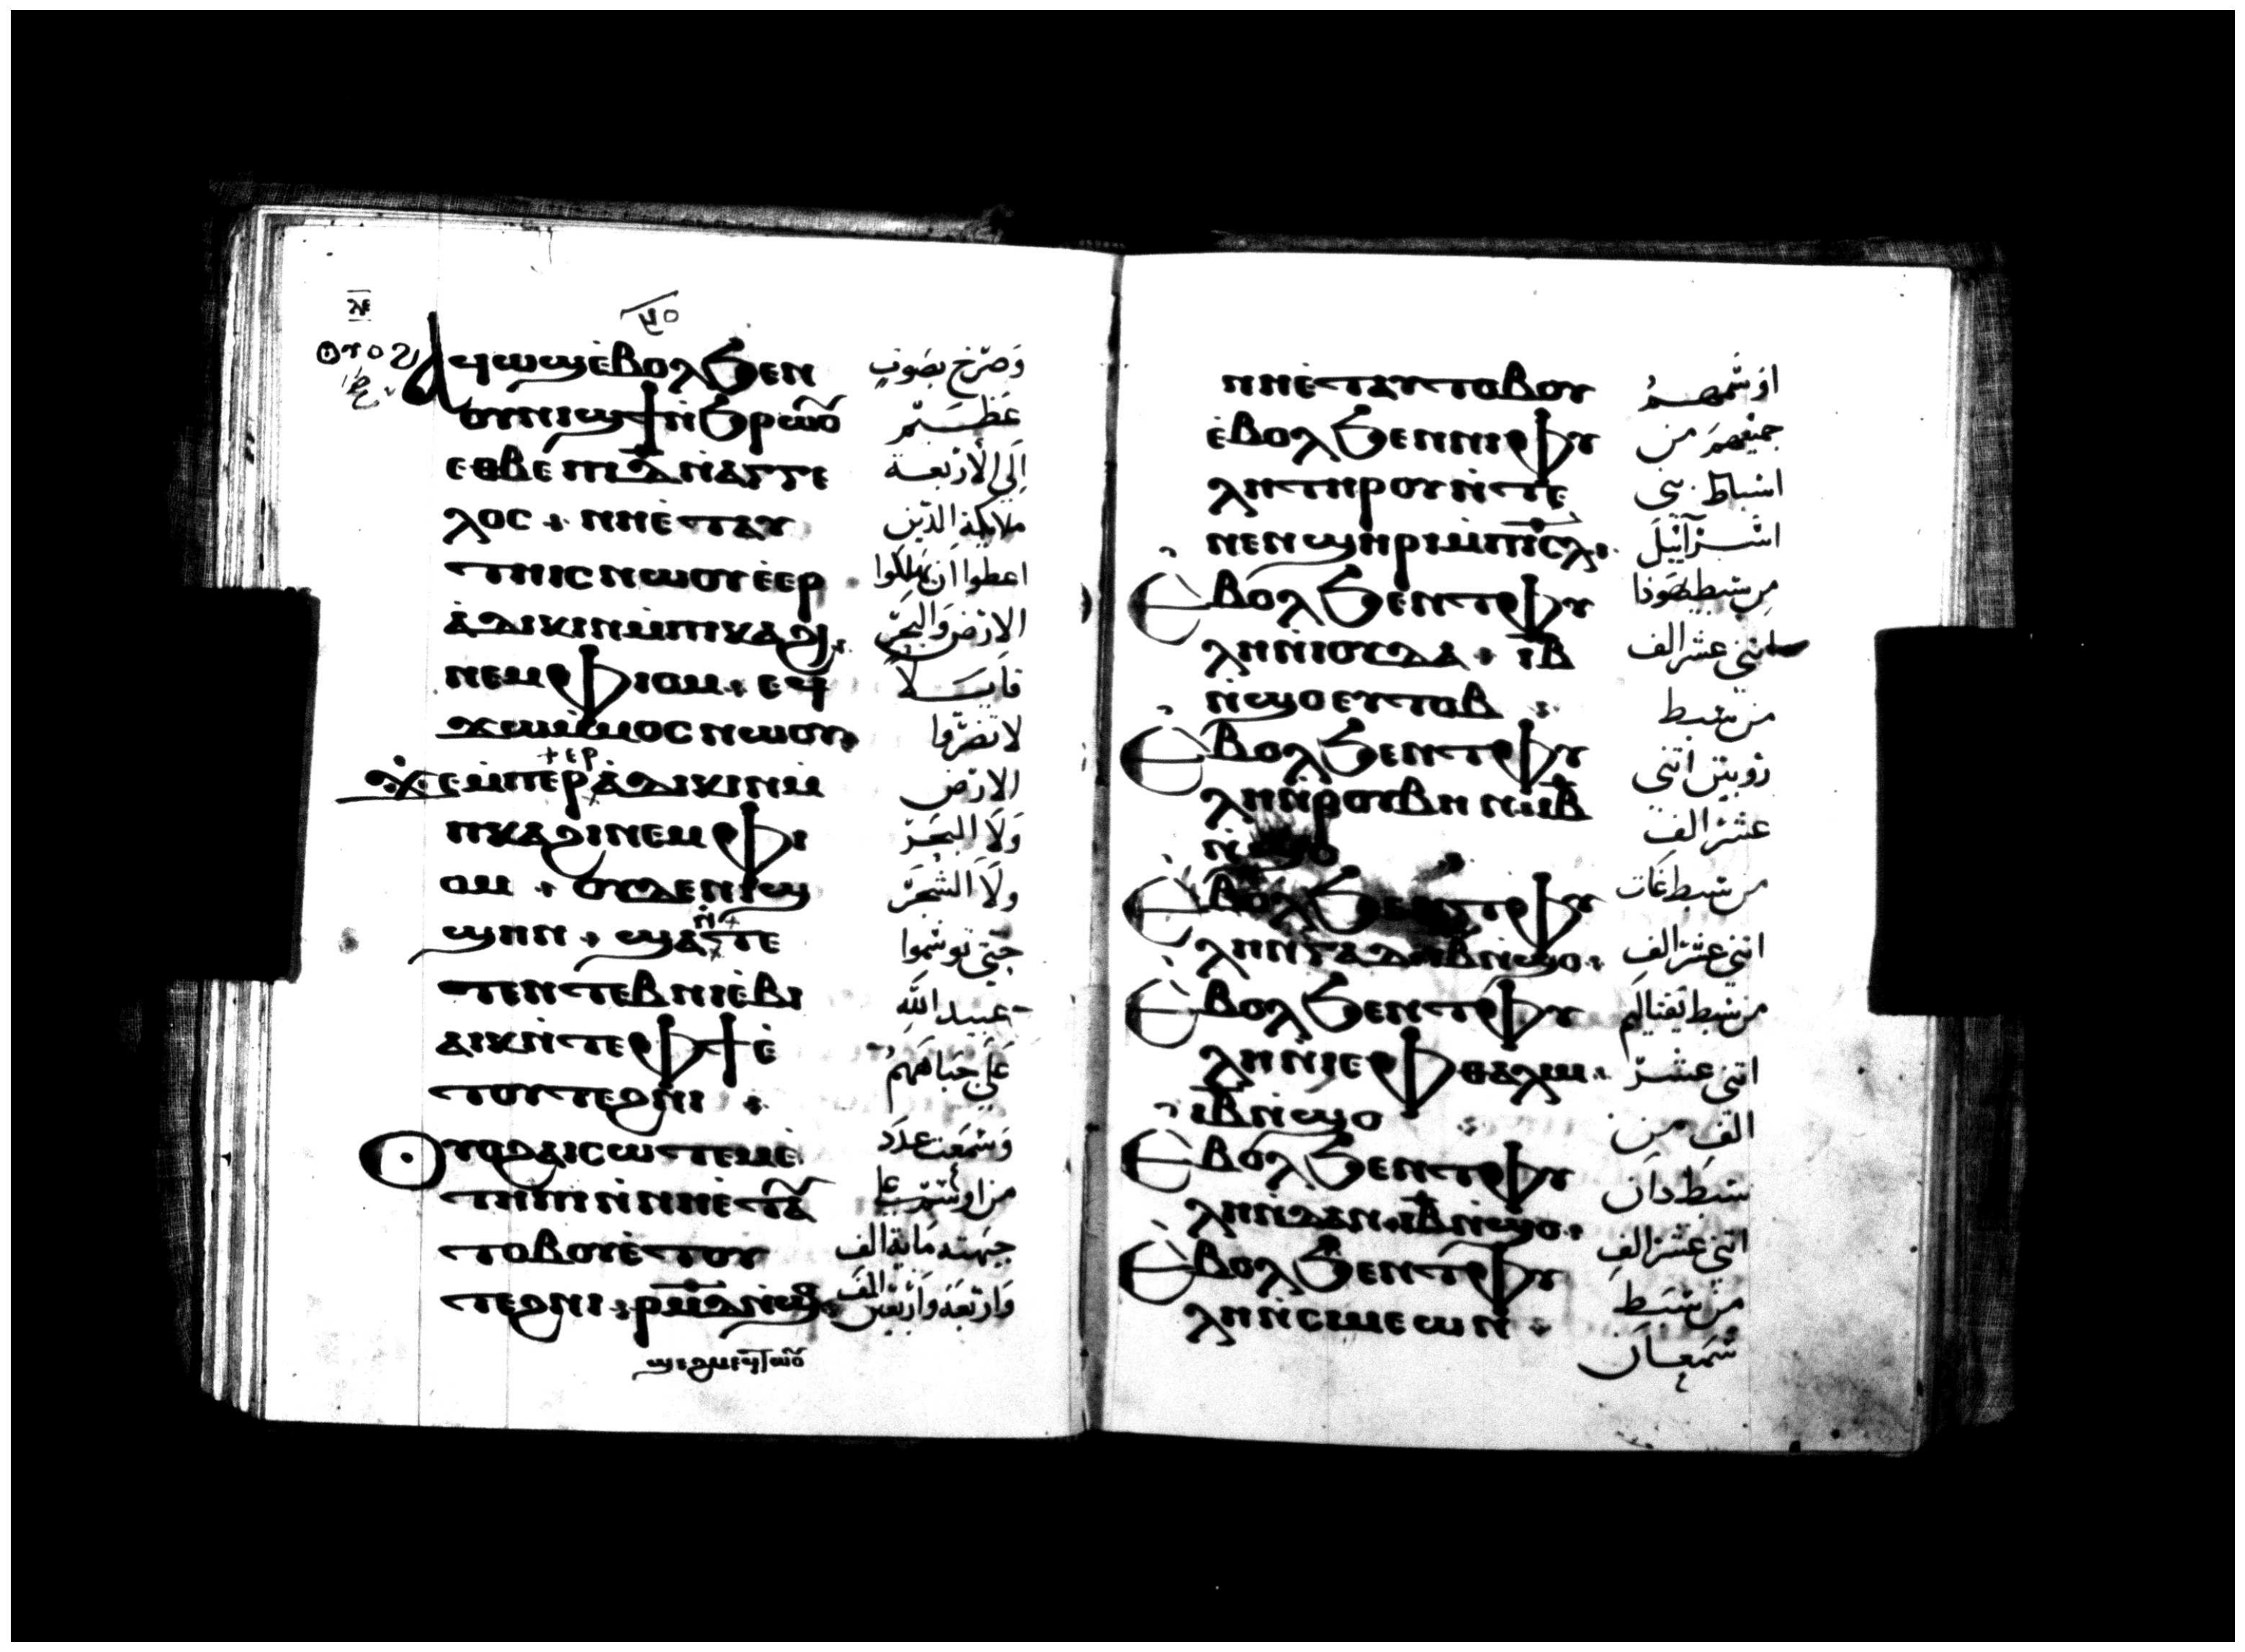 ⲗⲉ
ⲟⲩⲟϩ
ⲁϥⲱϣ ⲉ̀ⲃⲟⲗϧⲉⲛ وَصَرَخ بصَوتٍ
ⲟⲩⲛⲓϣϯ ⲛ̀ϧⲣⲱⲟⲩ عَظـيـم
ⲉⲑⲃⲉ ⲡⲓⲇ̅ ⲛ̀ⲁⲅⲅⲉ اِلَى الأربعـة
ⲗⲟⲥ ⲛⲏⲉ̀ⲧⲁⲩ ملايكة الذين
ⲧⲏⲓⲥ ⲛⲱⲟⲩ ⲉ̀ⲉⲣ اعطوا ان يهلكوا
ⲁ̀ⲇⲓⲕⲓⲛ ⲙ̀ⲡⲓⲕⲁϩⲓ الارض وَالبحر
ⲛⲉⲙ ⲫⲓⲟⲙ ⲉϥ قايـلاً
ϫⲱⲙ̀ⲙⲟⲥ ⲛⲱⲟⲩ لا تضرّوا
ϫⲉ ⲙ̀ⲡⲉⲣ ⲁ̀ⲇⲓⲕⲓⲛ ⲙ̀ الارض
+ⲉⲣ
ⲡⲕⲁϩⲓ ⲛⲉⲙ ⲫⲓ وَلَا البحَـر
ⲟⲙ ⲟⲩⲇⲉ ⲛⲓϣ ولَا الشجَر
ϣⲏⲛ ϣⲁⲧⲉ حتي نوشموا
ⲛ̀
ⲧⲉⲛⲧⲉⲃⲛⲓ ⲉ̀ⲃⲓ عبيـد الله
ⲁⲓⲕ ⲛ̀ⲧⲉ ⲫϯ ⲉ̀ عَلَى جبَاههم
ⲧⲟⲩⲧⲉϩⲛⲓ
ⲟⲩⲟϩ ⲁⲓⲥⲱⲧⲉⲙ ⲉ̀ وَسْمَعت عدَد
ⲧⲏⲡⲓ ⲛ̀ⲛⲏⲉ̀ⲧⲁⲩ من اوشم علي
ⲧⲟⲃⲟⲩ ⲉ̀ⲧⲟⲩ جبهته مَاية الف
ⲧⲉϩⲛⲓ ⲣⲙ̅ⲇ̅ ⲛ̀ϣⲟ وَاربَعَة وَاربعين الف
اوشمهـم
ⲛⲏⲉ̀ⲧⲁⲩⲧⲟⲃⲟⲩ
ⲉ̀ⲃⲟⲗϧⲉⲛ ⲛⲓⲫⲩ جميعهم من
ⲗⲏ ⲧⲏⲣⲟⲩ ⲛ̀ⲧⲉ اسباط بني
ⲛⲉⲛϣⲏⲣⲓ ⲙ̀ⲡⲓⲥ̅ⲗ̅ اسـرآئيل
ⲉ̀ⲃⲟⲗϧⲉⲛ ⲧⲫⲩ من سبط يهوذا
ⲗⲏ ⲛ̀ⲓⲟⲩⲇⲁ ⲓ̅ⲃ̅ اتني عشر الف
ⲛ̀ϣⲟ ⲉⲩⲧⲟⲃ من سبـط
ⲉ̀ⲃⲟⲗϧⲉⲛ ⲧⲫⲩ روبين اتني
ⲗⲏ ⲛ̀ⲣⲟⲩⲃⲏⲛ ⲓ̅ⲃ̅ عشر الف
ⲛ̀ϣⲟ
ⲉ̀ⲃⲟⲗϧⲉⲛ ⲧⲫⲩ من سبط غَات
ⲗⲏ ⲛ̀ⲅⲁⲇ ⲓ̅ⲃ̅ ⲛ̀ϣⲟ اتني عشر الف
ⲉ̀ⲃⲟⲗϧⲉⲛ ⲧⲫⲩ من سبط نفتاليم
ⲗⲏ ⲛ̀ⲓⲉⲫⲑⲁⲗⲓⲙ اتني عشـر
ⲓ̅ⲃ̅ ⲛ̀ϣⲟ الف من
ⲉ̀ⲃⲟⲗϧⲉⲛ ⲧⲫⲩ سبط دَان
ⲗⲏ ⲛ̀ⲇⲁⲛ ⲓ̅ⲃ̅ ⲛ̀ϣⲟ اتني عشر الف
ⲉ̀ⲃⲟⲗϧⲉⲛ ⲧⲫⲩ من سبـط
ⲗⲏ ⲛ̀ⲥⲓⲙⲉⲱⲛ شمعـان